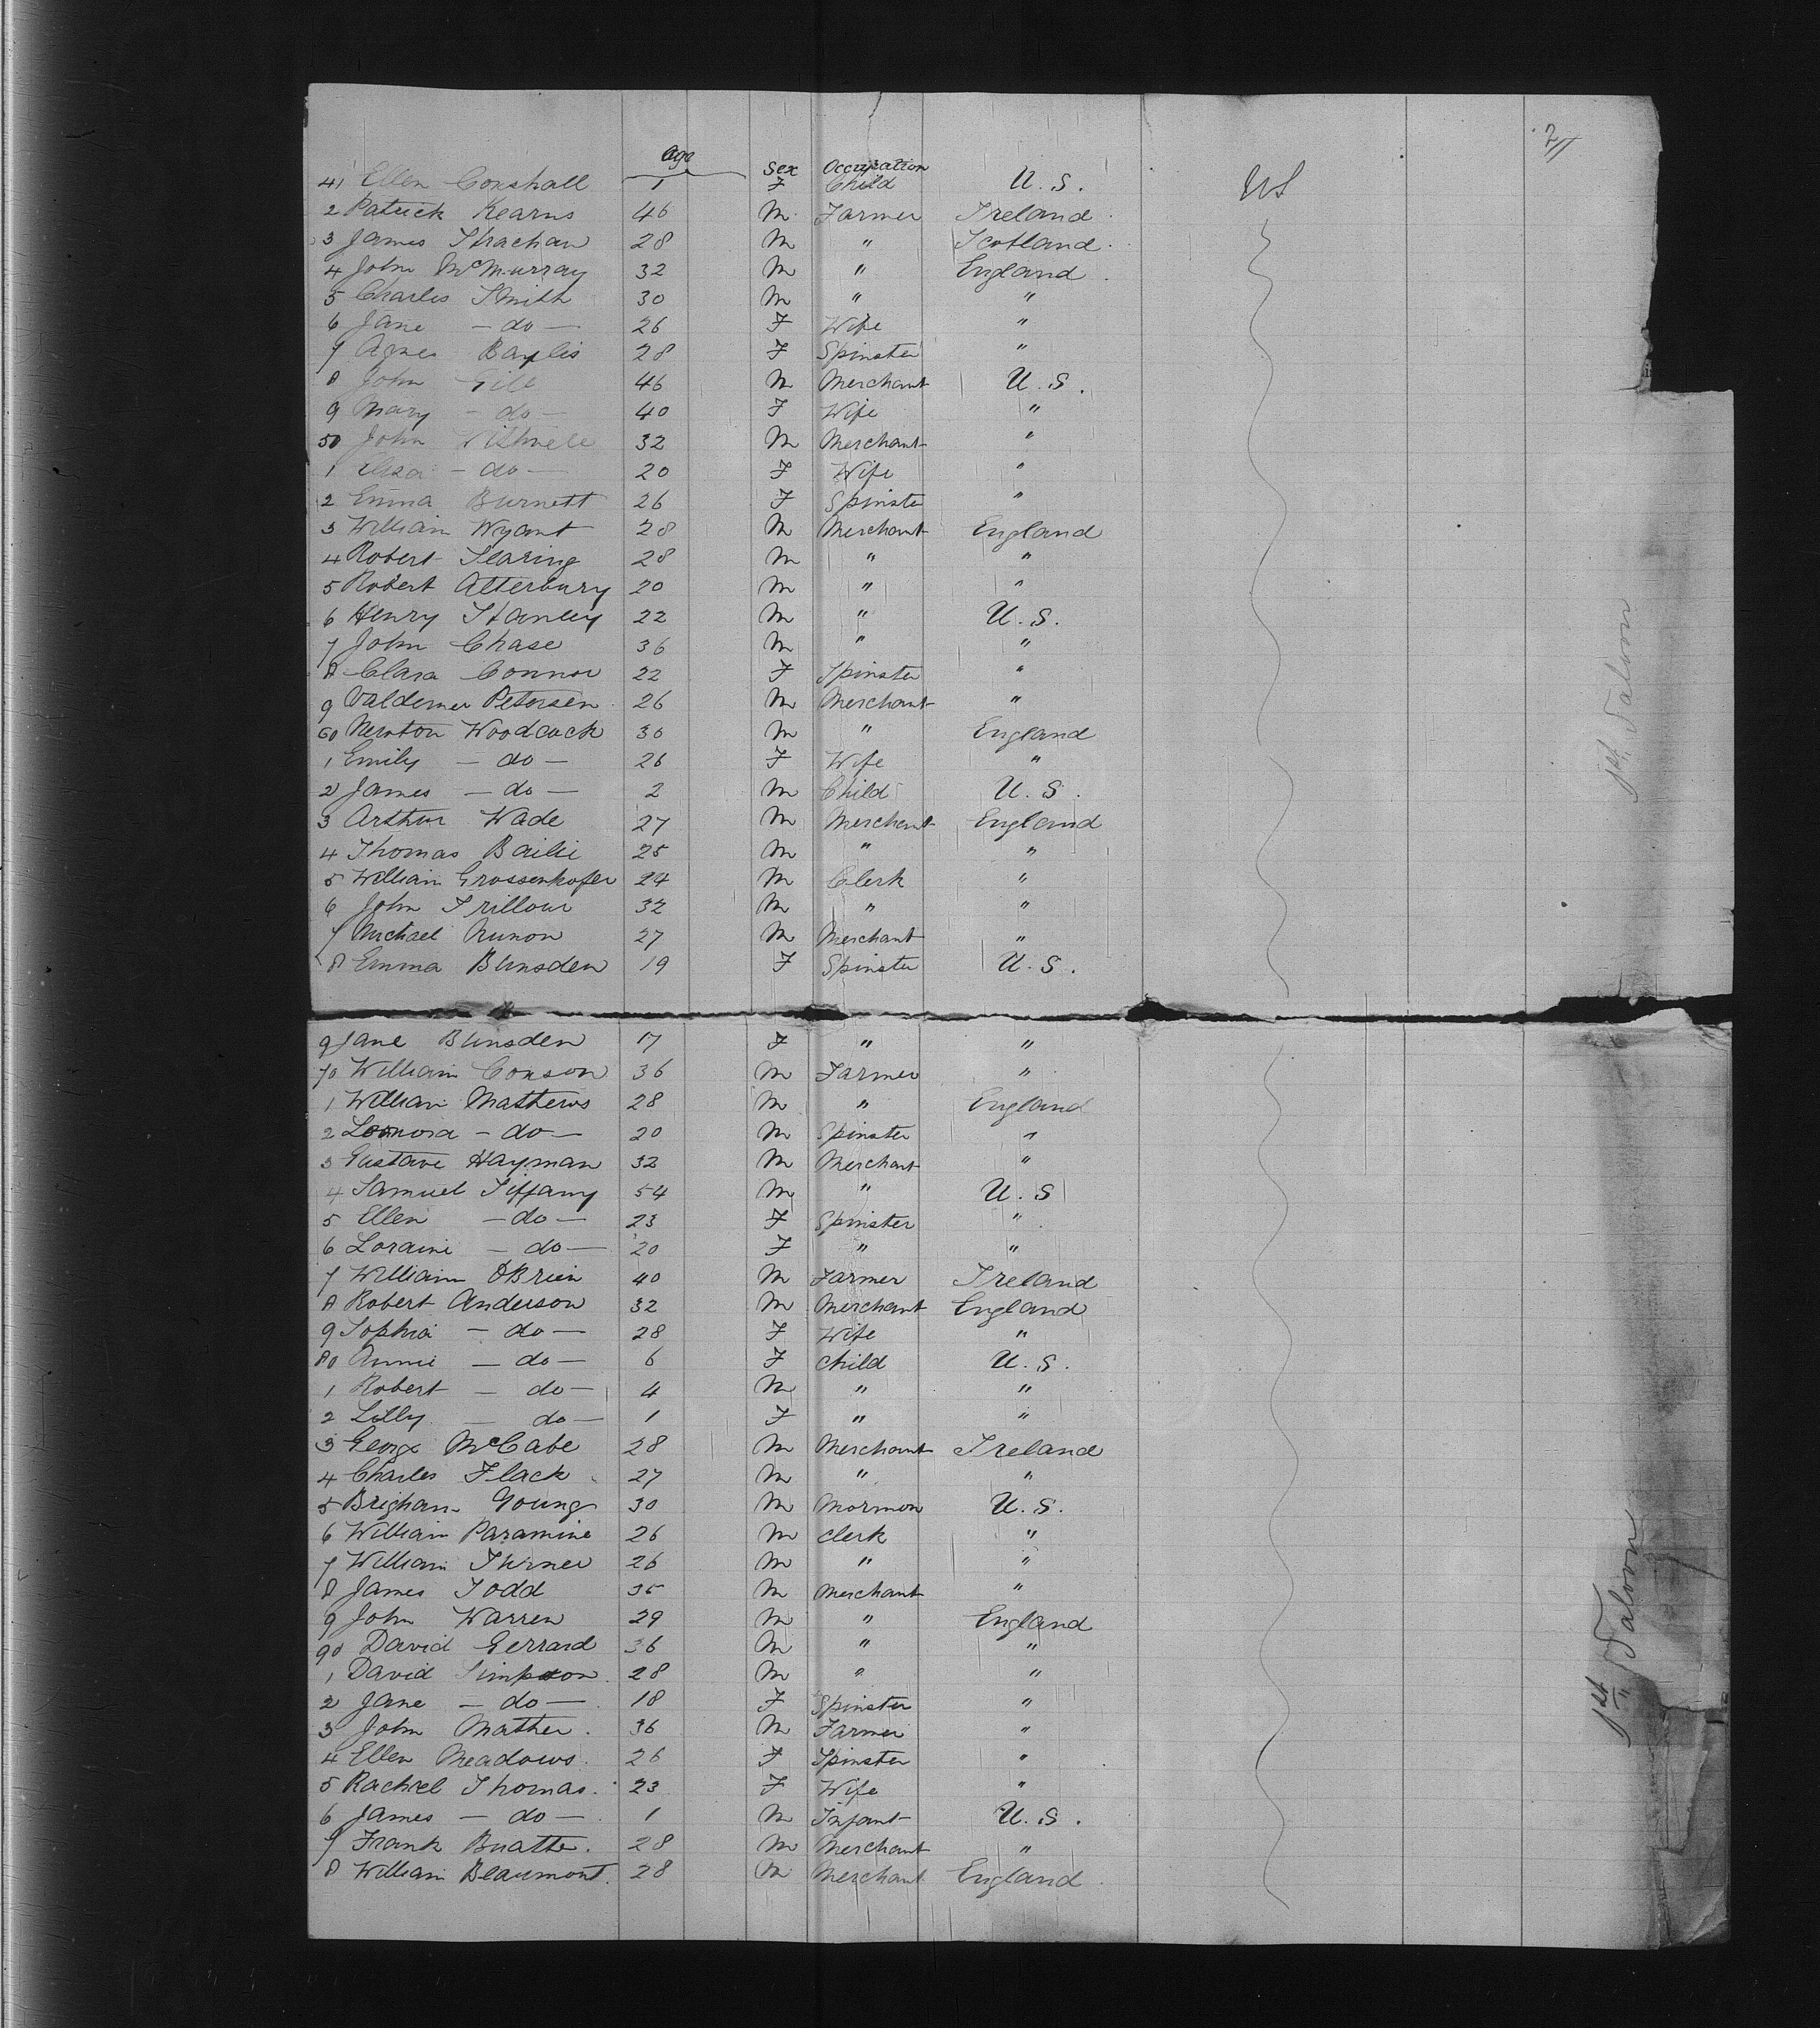 2/1
Age Sex Occupation
41 Ellen Conshall 1 F Child U.S. US
2 Patrick Kearns 46 M Farmer Ireland
3 James Strachan 28 M " Scotland
4 John McMurray 32 M " England
5 Charles Smith 30 M " "
6 Jane — do — 26 F Wife "
7 Agnes Baylis 28 F Spinster "
8 John Gill 46 M Merchant U.S.
9 Mary — do — 40 F Wife "
50 John 32 M Merchant "
1 Eliza — do — 20 F Wife "
2 Emma Burnett 26 F Spinster "
3 William Wyant 28 M Merchant England
4 Robert Searing 28 M " "
5 Robert Atterbury 20 M " "
6 Henry Stanley 22 M " U.S.
7 John Chase 36 M " "
8 Clara Connor 22 F Spinster "
9 Valdemer Petersen 26 M Merchant "
60 Newton Woodcock 30 M " England
1 Emily — do — 26 F Wife "
2 James — do — 2 M Child U.S.
3 Arthur Wade 27 M Merchant England
4 Thomas Bailie 25 M " "
5 William Grossenhofer 24 M Clerk "
6 John Trillour 32 M " "
7 Michael Nunon 27 M Merchant "
8 Emma Blunsden 19 F Spinster U.S.
9 Jane Blunsden 17 F " "
70 William Conson 36 M Farmer "
1 William Mathews 28 M " England
2 Leonora — do — 20 M Spinster "
3 Gustave Hayman 32 M Merchant "
4 Samuel Tiffany 54 M " U.S
5 Ellen — do — 23 F Spinster "
6 Loraine — do — 20 F " "
7 William OBrien 40 M Farmer Ireland
8 Robert Anderson 32 M Merchant England
9 Sophia — do — 28 F Wife "
80 Annie — do — 6 F Child U.S.
1 Robert — do — 4 M " "
2 Lilly — do — 1 F " "
3 George McCabe 28 M Merchant Ireland
4 Charles Flack 27 M " "
5 Brigham Young 30 M Mormon U.S.
6 William Paramine 26 M Clerk "
7 William Turner 26 M " "
8 James Todd 35 M Merchant "
9 John Warren 29 M " England
90 David Gerrard 36 M " "
1 David Simpson 28 M " "
2 Jane — do — 18 F Spinster "
3 John Mather 36 M Farmer "
4 Ellen Meadows 26 F Spinster "
5 Rachel Thomas 23 F Wife "
6 James — do — 1 M Infant U.S.
7 Frank Buatte 28 M Merchant "
8 William Beaumont 28 M Merchant England
1st Saloon
1st Saloon